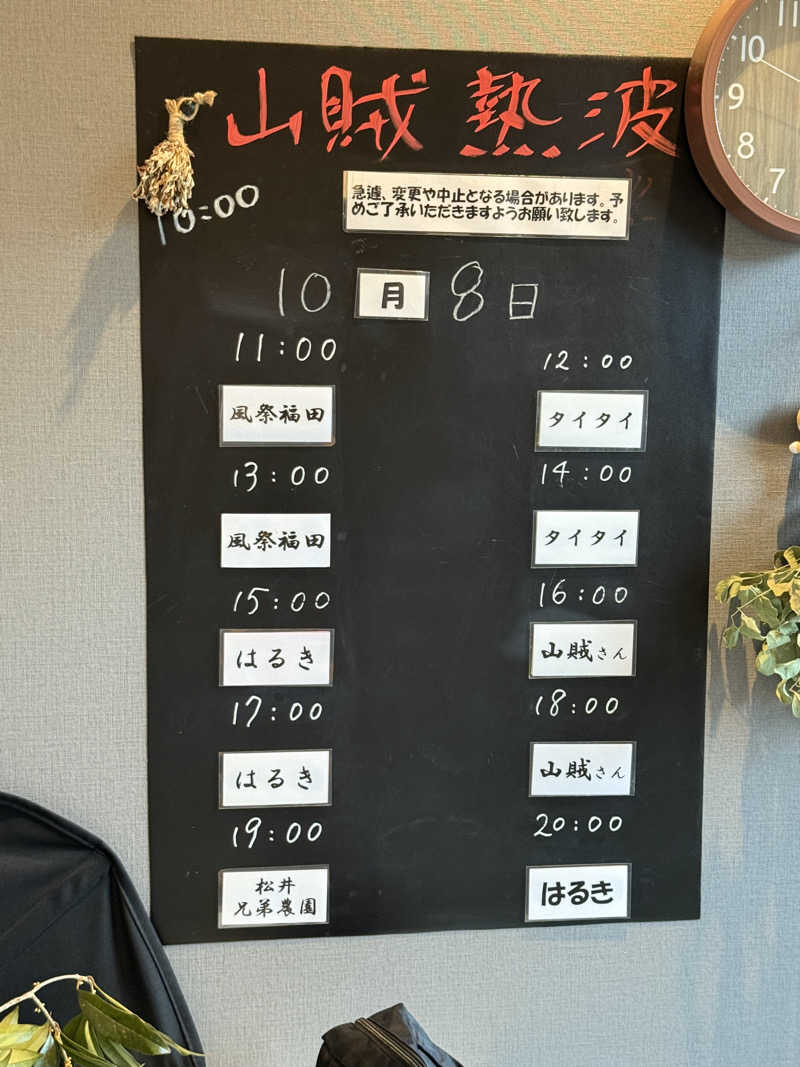 山賊 熱波
10:00
急遽、変更や中止となる場合があります。予
めご了承いただきますようお願い致します。
10月8日
11:00
12:00
風祭福田
タイタイ
13:00
14:00
風祭福田
タイタイ
15:00
16:00
はるき
山賊さん
17:00
18:00
はるき
山賊さん
19:00
20:00
松井
兄弟農園
はるき
11
10
9
8
7